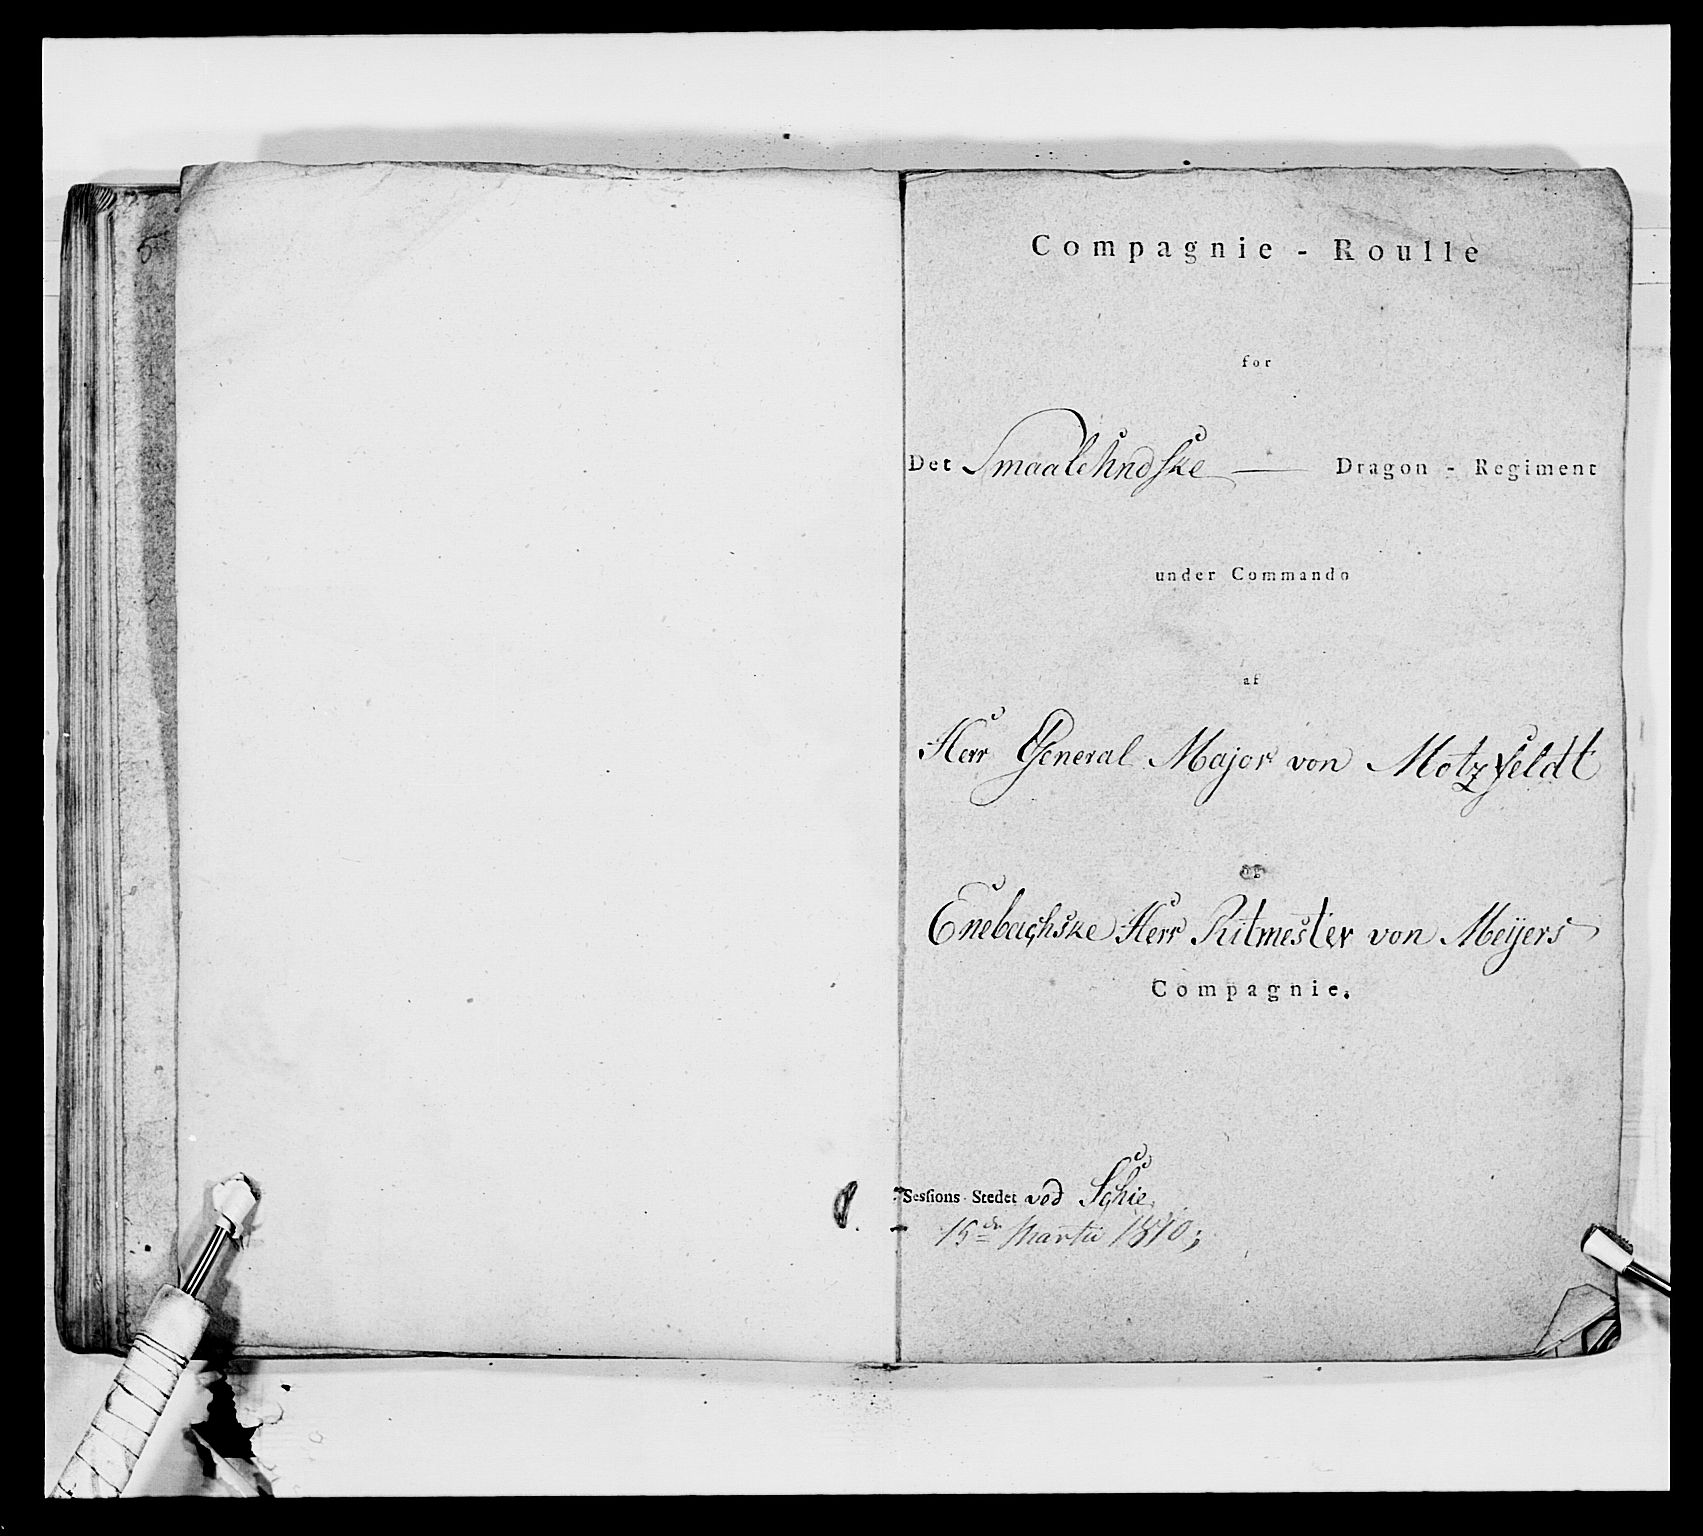 Compagnie - Roulle
for
Det Smaalehndske — Dragon - Regiment
under Commando
af
Herr General Major von Motzfeldt
og
Enebachske Herr Ritmester von Meijers
Compagnie.
Sessions-Stedet ved Schie
15de Martii 1810;